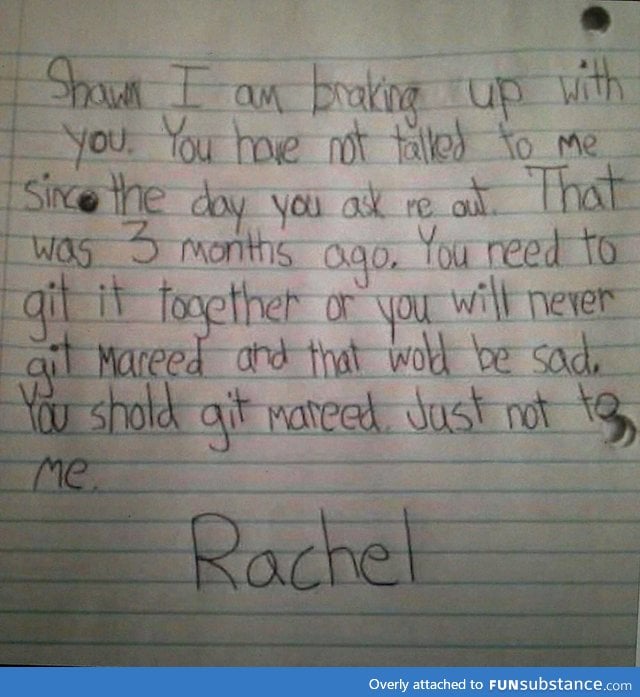 Shawn I am braking up with
you. You have not talked to me
since the day you ask me out. That
was 3 months ago. You need to
git it together or you will never
git mareed and that wold be sad.
You shold git mareed. Just not to
me.
Rachel
Overly attached to FUNsubstance.com